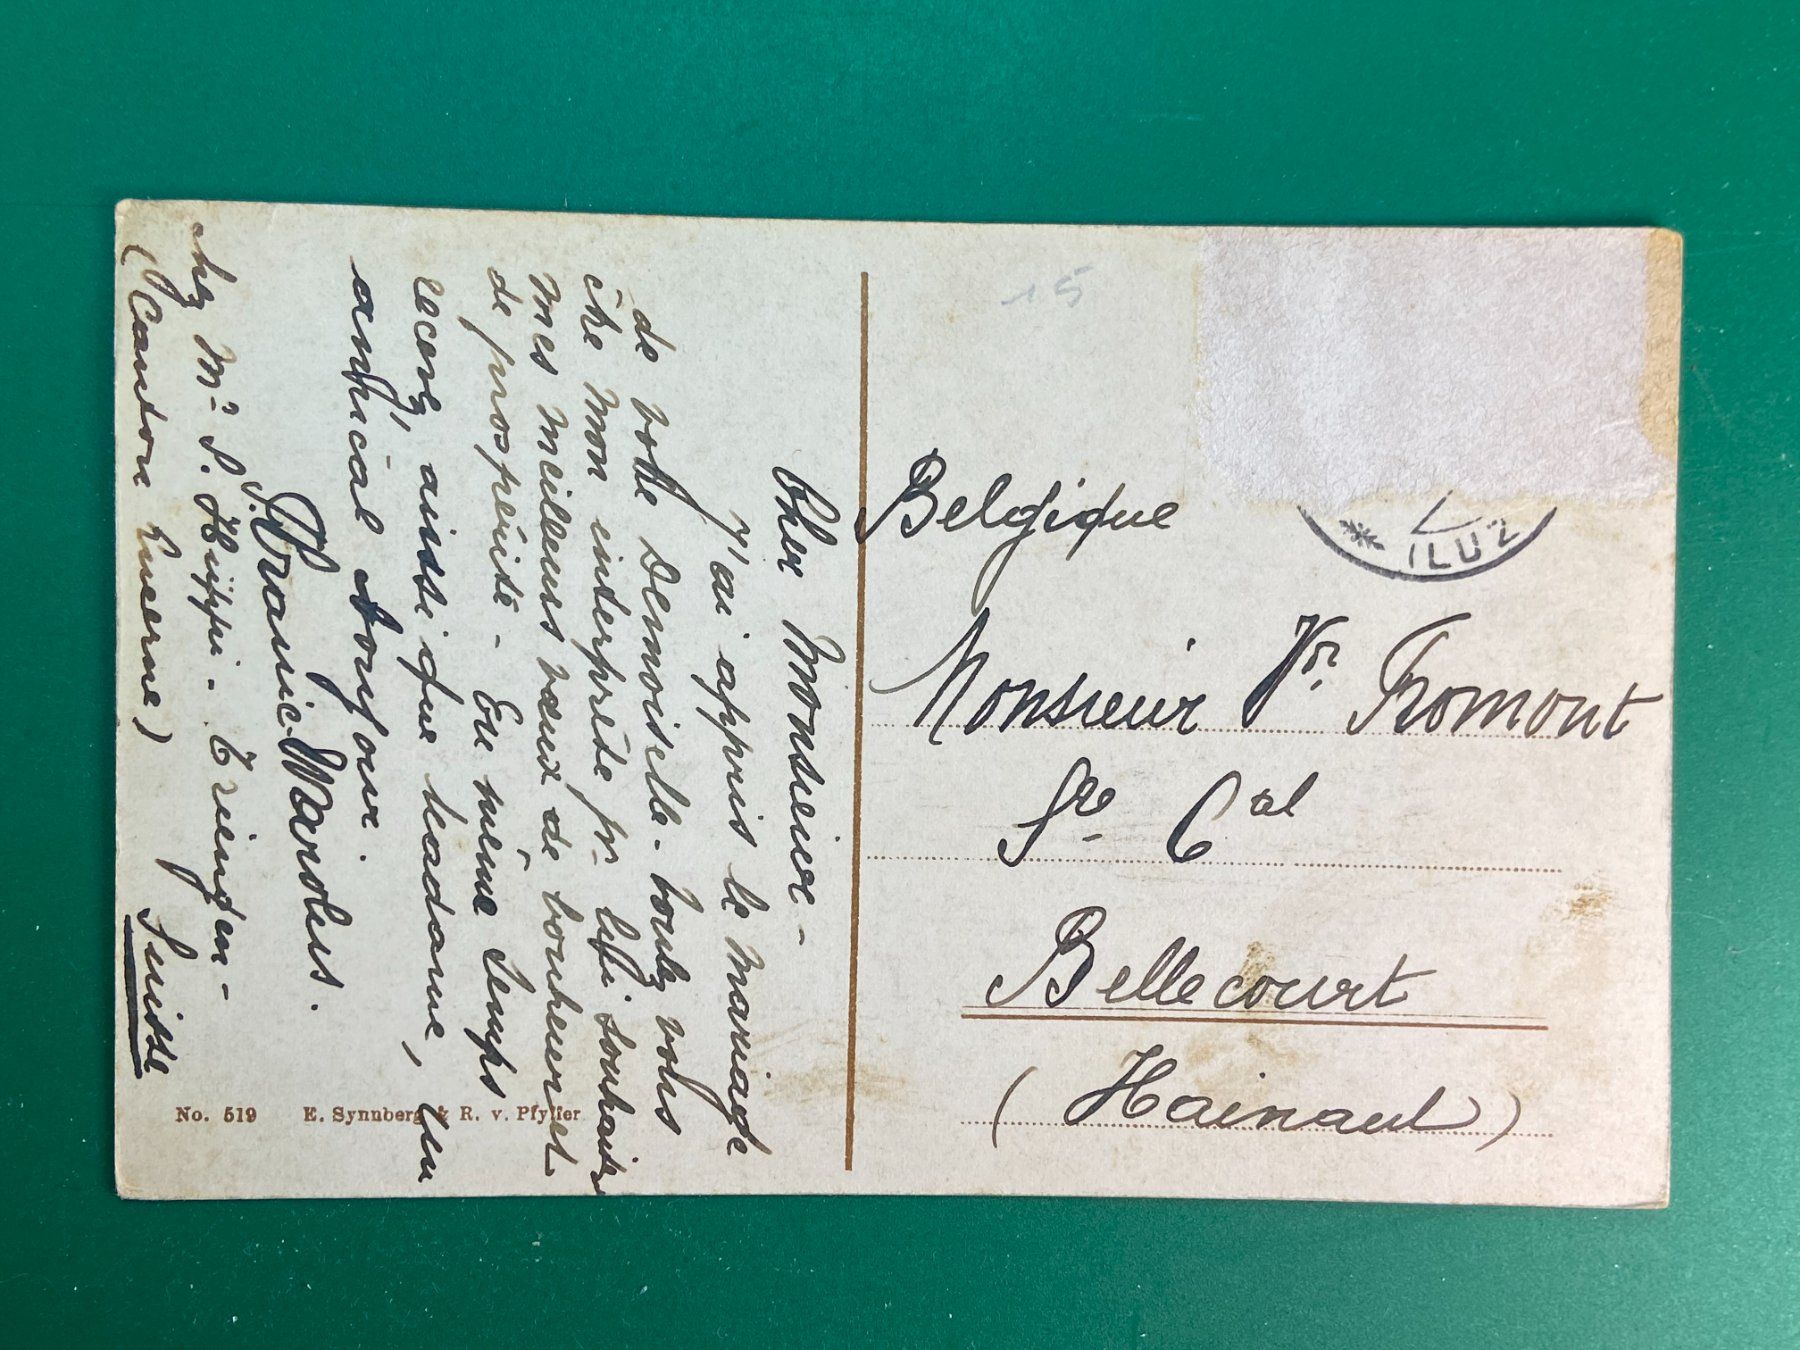 Cher Monsieur -
J'ai appris le mariage
de votre Demoiselle - voulez vous
être mon interprète pr. lui souhaiter
mes meilleurs vœux de bonheur et
de prospérité - En même temps
recevez, ainsi que Madame, un
amical bonjour.
S. Franic-Marolus.
chez Mr S. Hüppi - Triengen -
(Canton Lucerne) Suisse
No. 519 E. Synnberg & R. v. Pfyffer
15
Belgique
ILUZ
Monsieur Vr. Fromont
Sre Cal
Bellecourt
(Hainaut)